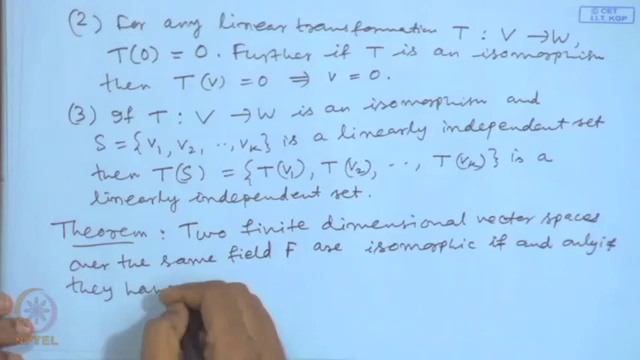 © CET
I.I.T. KGP
(2) For any linear transformation T : V → W,
T(0) = 0. Further if T is an isomorphism
then T(v) = 0 ⇒ v = 0.
(3) If T : V → W is an isomorphism and
S = {v₁, v₂, .., vₖ} is a linearly independent set
then T(S) = {T(v₁), T(v₂), .., T(vₖ)} is a
linearly independent set.
Theorem : Two finite dimensional vector spaces
over the same field F are isomorphic if and only if
they hav
NPTEL